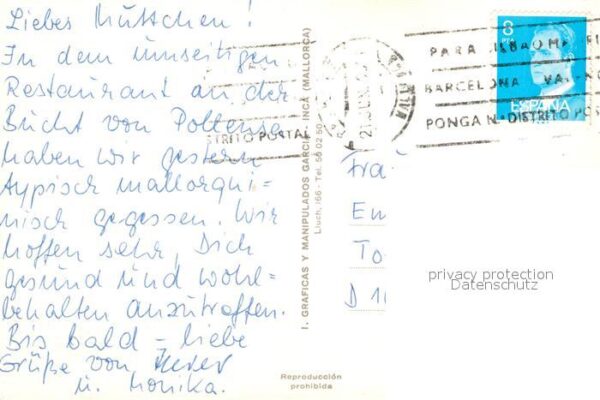 Liebes Muttchen!
In dem umseitigen
Restaurant an der
Bucht von Pollensa
haben wir gestern
typisch mallorqui-
nisch gegessen. Wir
hoffen sehr, Dich
gesund und wohl-
behalten anzutreffen.
Bis bald – liebe
Grüße von
u. Monika.
I. GRAFICAS Y MANIPULADOS GARCIAS, INCA (MALLORCA)
Lluch, 166 - Tel. 50 02 50
Reproducción
prohibida
STRITO POSTAL
8
PTA
ESPAÑA
PARA BILBAO
BARCELONA
PONGA Nº DISTRITO POS
Frau
Em
To
D 10
privacy protection
Datenschutz